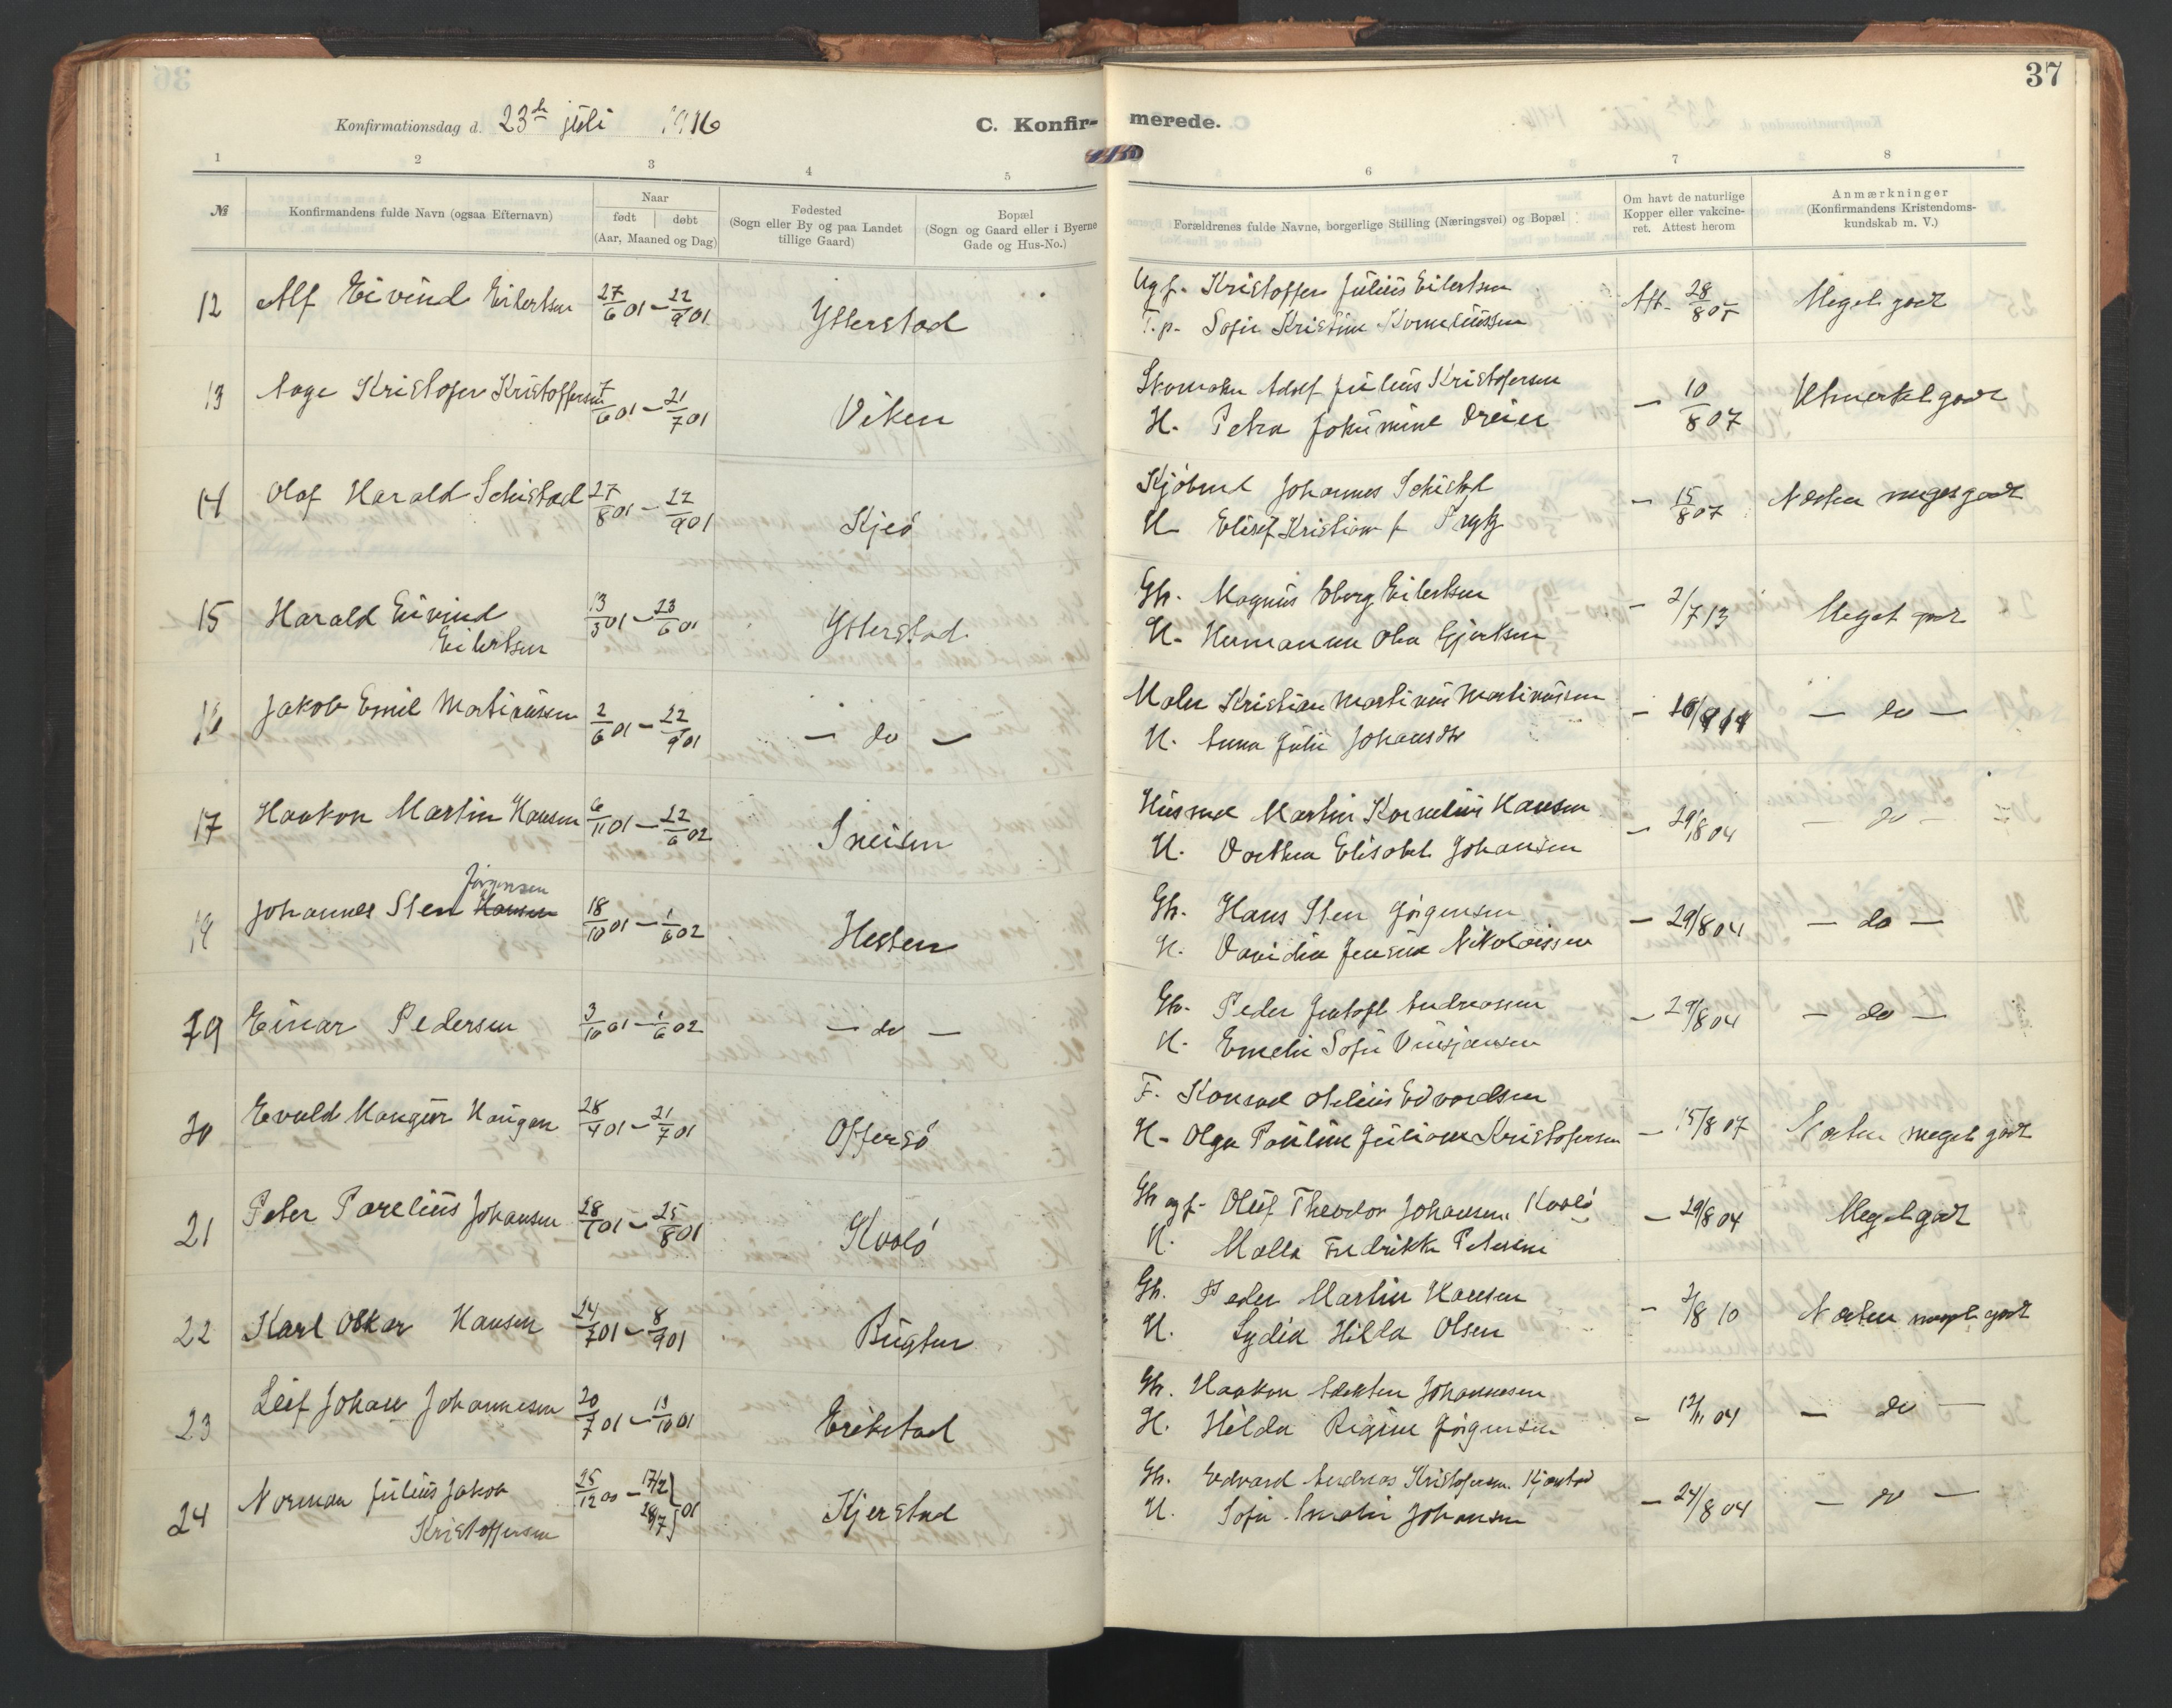 37
Konfirmationsdag d. 23de juli 1916
C. Konfir- merede.
1 2 3 4 5 6 7 8
№
Konfirmandens fulde Navn (ogsaa Efternavn)
Naar
født døbt
(Aar, Maaned og Dag)
Fødested
(Sogn eller By og paa Landet
tillige Gaard)
Bopæl
(Sogn og Gaard eller i Byerne
Gade og Hus-No.)
Forældrenes fulde Navne, borgerlige Stilling (Næringsvei) og Bopæl
Om havt de naturlige
Kopper eller vakcine-
ret. Attest herom
Anmærkninger
(Konfirmandens Kristendoms-
kundskab m. V.)
12 Alf Eivind Eilertsen 27/6 01 – 22/9 01 Ytterstad Ugf. Kristoffer Julius Eilertsen Att. 28/8 05 Meget godt
T.p. Sofie Kristine Korneliussen
13 Aage Kristofer Kristoffersen 7/6 01 – 21/7 01 Viken Skomaker Adolf Julius Kristofersen – 10/8 07 Utmerket godt
H. Petra Johannine Dreier
14 Olaf Harald Schistad 27/8 01 – 22/9 01 Kjeö Kjöbmd Johannes Schistad – 15/8 07 Næsten meget godt
H. Elisif Kristiane f.
15 Harald Eivind 13/3 01 – 23/6 01 Ytterstad Gb. Magnus Eberg Eilertsen – 2/7 13 Meget godt
Eilertsen H. Hermanne Olea Gjertsen
16 Jakob Emil Martinussen 2/6 01 – 22/9 01 – do – Maler Kristian Martinus Martinussen – do –
H. Anna Julie Johansdtr
17 Haakon Martin Hansen 6/11 01 – 22/6 02 Sneisen Husmd Martin Kornelius Hansen – 29/8 04 – do –
H. Dorthea Elisabet Johansen
Jørgensen
18 Johannes Sten Hansen 18/10 01 – 1/6 02 Hesten Gb. Hans Sten Jörgensen – 29/8 04 – do –
H. Davidia Jensine Nikolaissen
19 Einar Pedersen 3/10 01 – 1/6 02 – do – Gb. Peder Jentoft Andreassen – 29/8 04 – do –
H. Emelie Sofie
20 Evald Haugen 28/4 01 – 21/7 01 Offersö F. Konrad Edvardsen – 15/8 07 Næsten meget godt
H. Olga Pauline Juliane Kristofersen
21 Peter Parelius Johansen 28/ 01 – 25/8 01 Kvalö Gb. og f. Oluf Theodor Johansen. Kvalö – 29/8 04 Meget godt
H. Malla Fredrikke Petersine
22 Karl Oskar Hansen 24/7 01 – 8/9 01 Bugten Gb. Peder Martin Hansen – 2/8 10 Næsten meget godt
H. Lydia Hilda Olsen
23 Leif Johan Johannesen 20/7 01 – 13/10 01 Erikstad Gb. Haakon Johannesen – 12/11 04 – do –
H. Hilda Regine Jörgensen
24 Norman Julius Jakob 25/12 00 – 17/2 28/7 } 01 Kjerstad Gb. Edvard Andreas Kristofersen. Kjerstad – 24/8 04 – do –
Kristoffersen H. Sofie Amalie Johansen